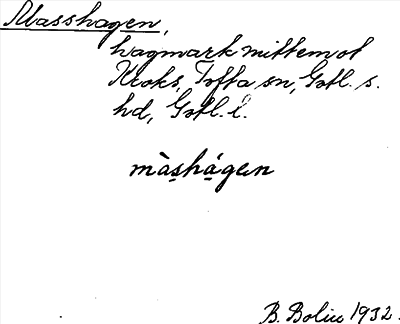 Masshagen,
hagmark mittemot
Kroks, Tofta sn, Gotl. s.
hd, Gotl. l.
màshágen
B. Bolin 1932.